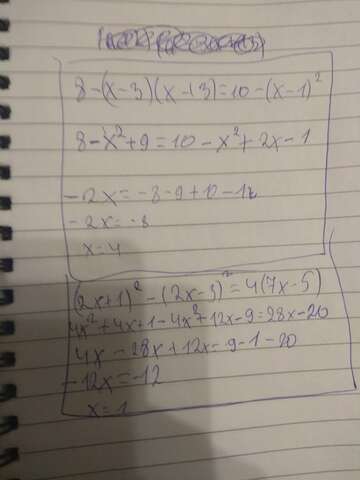 8-(x-3)(x+3)=10-(x-1)²
8-x²+9=10-x²+2x-1
-2x=-8-9+10-1
-2x=-8
x=4
(2x+1)²-(2x-3)²=4(7x-5)
4x²+4x+1-4x²+12x-9=28x-20
4x-28x+12x=9-1-20
-12x=-12
x=1